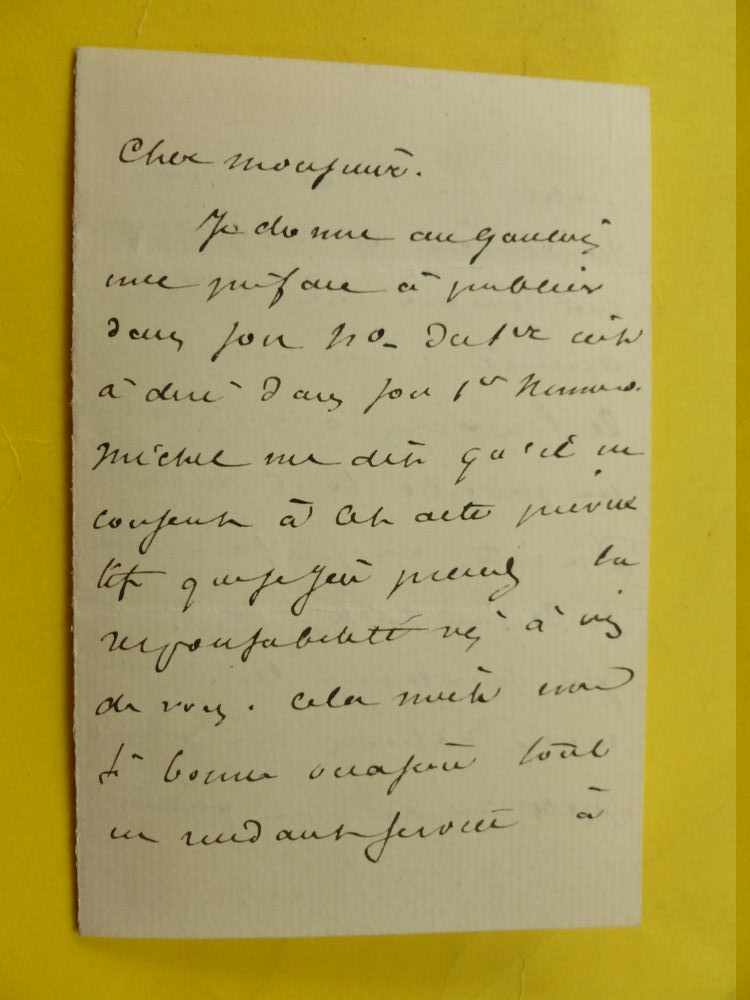 Cher monsieur.
Je donne au Gaulois
une préface à publier
dans son no du 1er c'est
à dire dans son 1er numero.
Michel me dit qu'il ne
consent à cet acte
que si j'en prends la
responsabilité vis à vis
de vous. Cela m'est une
si bonne occasion tout
en rendant service à